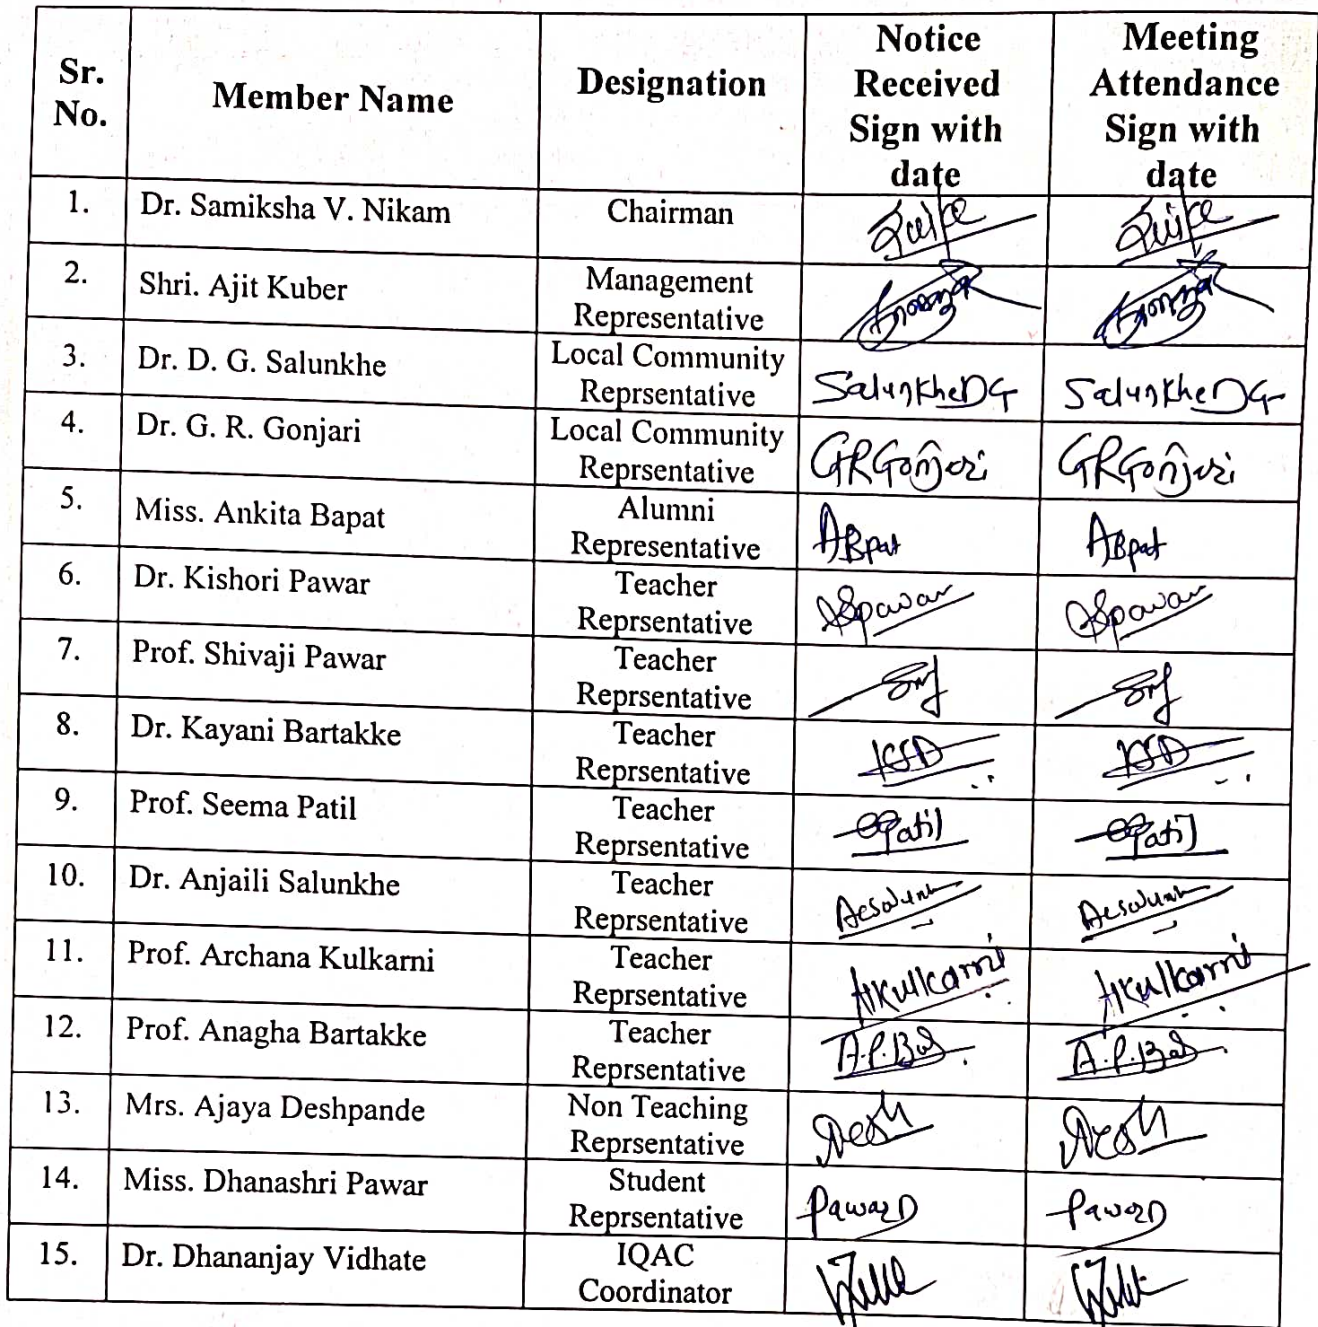 Sr. No. Member Name Designation Notice Received Sign with date Meeting Attendance Sign with date
1. Dr. Samiksha V. Nikam Chairman
2. Shri. Ajit Kuber Management Representative
3. Dr. D. G. Salunkhe Local Community Reprsentative SalunkheDG SalunkheDG
4. Dr. G. R. Gonjari Local Community Reprsentative GRGonjari GRGonjari
5. Miss. Ankita Bapat Alumni Representative ABpat ABpat
6. Dr. Kishori Pawar Teacher Reprsentative
7. Prof. Shivaji Pawar Teacher Reprsentative
8. Dr. Kayani Bartakke Teacher Reprsentative
9. Prof. Seema Patil Teacher Reprsentative
10. Dr. Anjaili Salunkhe Teacher Reprsentative
11. Prof. Archana Kulkarni Teacher Reprsentative AKulkarni AKulkarni
12. Prof. Anagha Bartakke Teacher Reprsentative
13. Mrs. Ajaya Deshpande Non Teaching Reprsentative
14. Miss. Dhanashri Pawar Student Reprsentative PawarD PawarD
15. Dr. Dhananjay Vidhate IQAC Coordinator